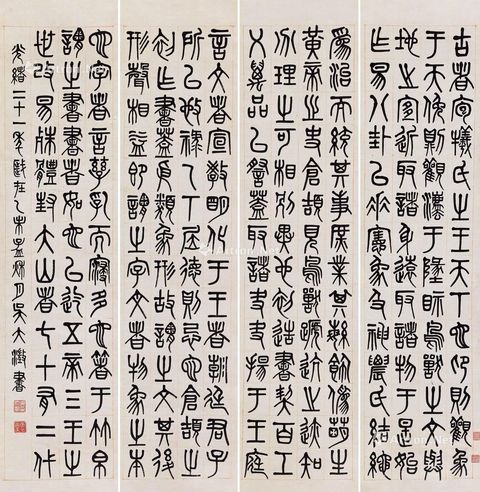 古者庖犧氏之王天下也仰則觀象
于天俯則觀灋于地眡鳥獸之文與
地之宜近取諸身遠取諸物于是始
作易八卦以垂憲象及神農氏結繩
爲治而統其事庶業其緐飾僞萌生
黃帝之史倉頡見鳥獸蹏迒之迹知
分理之可相別異也初造書契百工
乂萬品以詧蓋取諸夬夬揚于王庭
言文者宣敎明化于王者朝廷君子
所以施祿及下居德則忌也倉頡之
初作書蓋依類象形故謂之文其後
形聲相益即謂之字文者物象之本
也字者言孳乳而寖多也箸于竹帛
謂之書書者如也以迄五帝三王之
世改易殊體封大山者七十有二代
光緒二十一年歲在乙未孟秋月吳大澂書